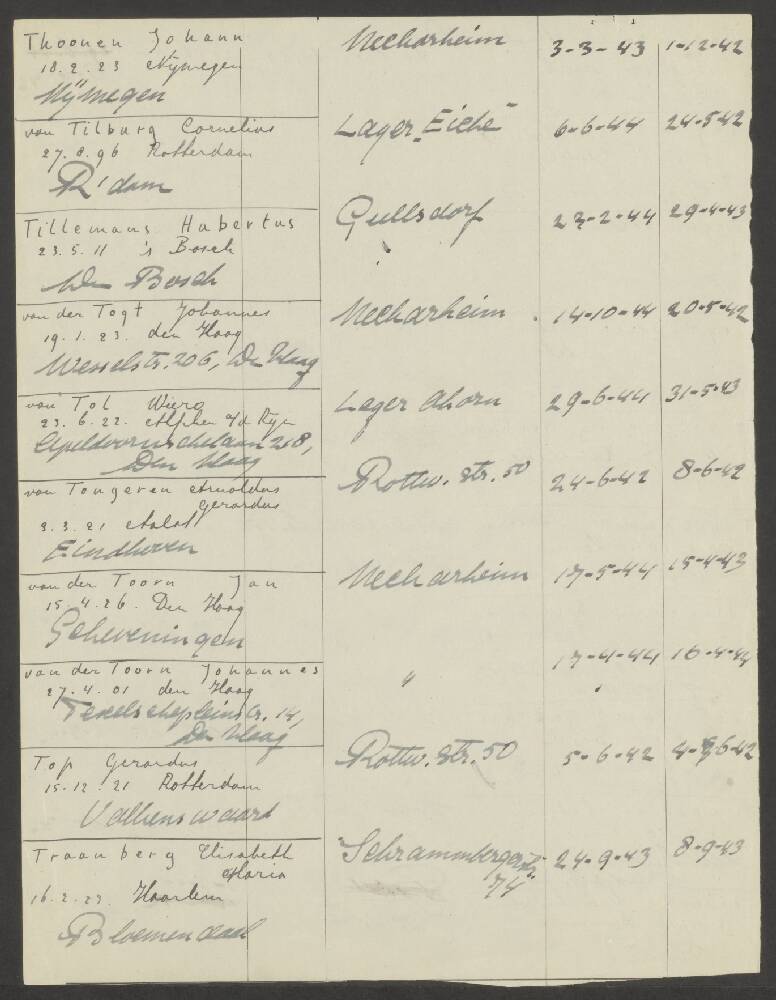 Thoonen Johann Neckarheim 3-3-43 1-12-42
18.2.23 Nijmegen
Nijmegen
van Tilburg Cornelius Lager "Eiche" 6-6-44 24-5-42
27.8.96 Rotterdam
R'dam
Tillemans Hubertus Gullsdorf 23-2-44 29-4-43
23.5.11 's Bosch
Den Bosch
van der Togt Johannes Neckarheim 14-10-44 20-5-42
19.1.23. den Haag
Wesselstr. 206, Den Haag
van Tol Wiero Lager Ahorn 29-6-44 31-5-43
23.6.22. Alphen a/d Ryn
Apeldoornschelaan 218,
Den Haag
van Tongeren Arnoldus Rottw. Str. 50 24-6-42 8-6-42
Gerardus
3.3.21 Aalst
Eindhoven
van der Toorn Jan Neckarheim 17-5-44 15-4-43
15.4.26. Den Haag
Scheveningen
van der Toorn Johannes " 17-4-44 16-4-44
27.4.01 den Haag
Texelscheplein str. 14,
Den Haag
Top Gerardus Rottw. Str. 50 5-6-42 4-6-42
15.12.21 Rotterdam
Valkenswaard
Traanberg Elisabeth Schrammbergerstr. 24-9-43 8-9-43
Maria 74
16.2.23. Haarlem
Bloemendaal